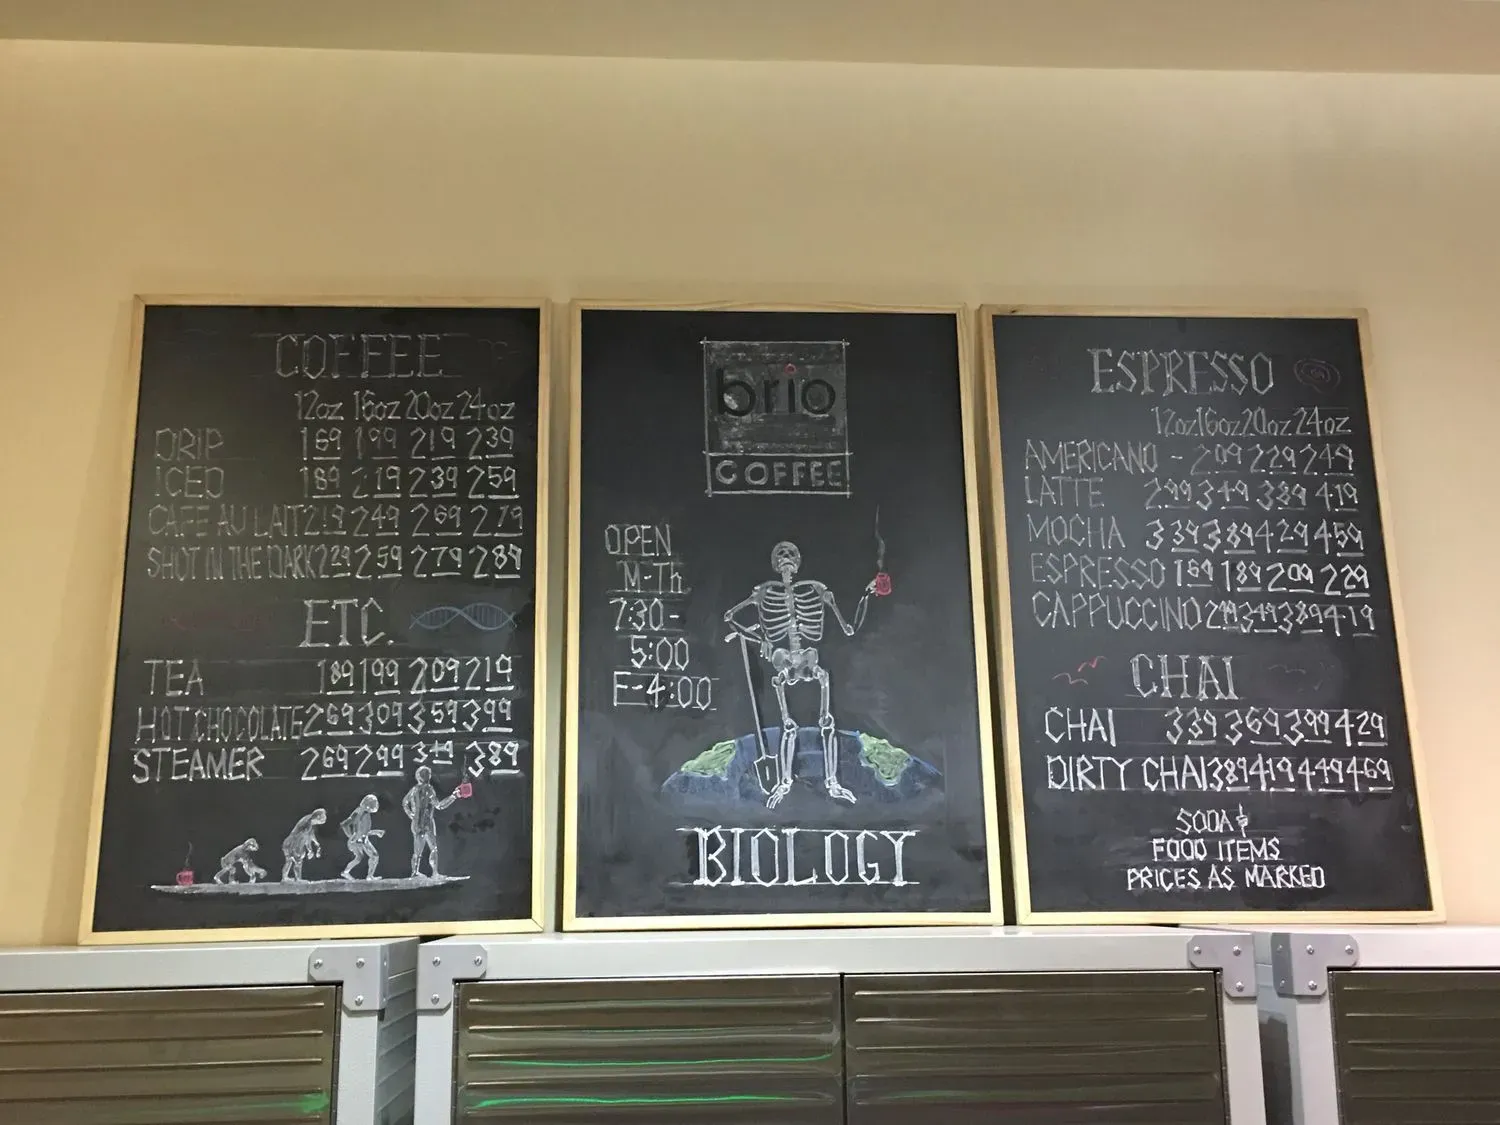 COFFEE
12oz 16oz 20oz 24oz
DRIP 169 199 219 239
ICED 189 219 239 259
CAFE AU LAIT 219 249 269 279
SHOT IN THE DARK 229 259 279 289
ETC.
TEA 189 199 209 219
HOT CHOCOLATE 269 309 359 399
STEAMER 269 299 349 389
brio
COFFEE
OPEN
M-Th
7:30-
5:00
F-4:00
BIOLOGY
ESPRESSO
12oz 16oz 20oz 24oz
AMERICANO - 209 229 249
LATTE 299 349 389 419
MOCHA 339 389 429 459
ESPRESSO 169 189 209 229
CAPPUCCINO 299 349 389 419
CHAI
CHAI 339 369 399 429
DIRTY CHAI 389 419 449 469
SODA &
FOOD ITEMS
PRICES AS MARKED